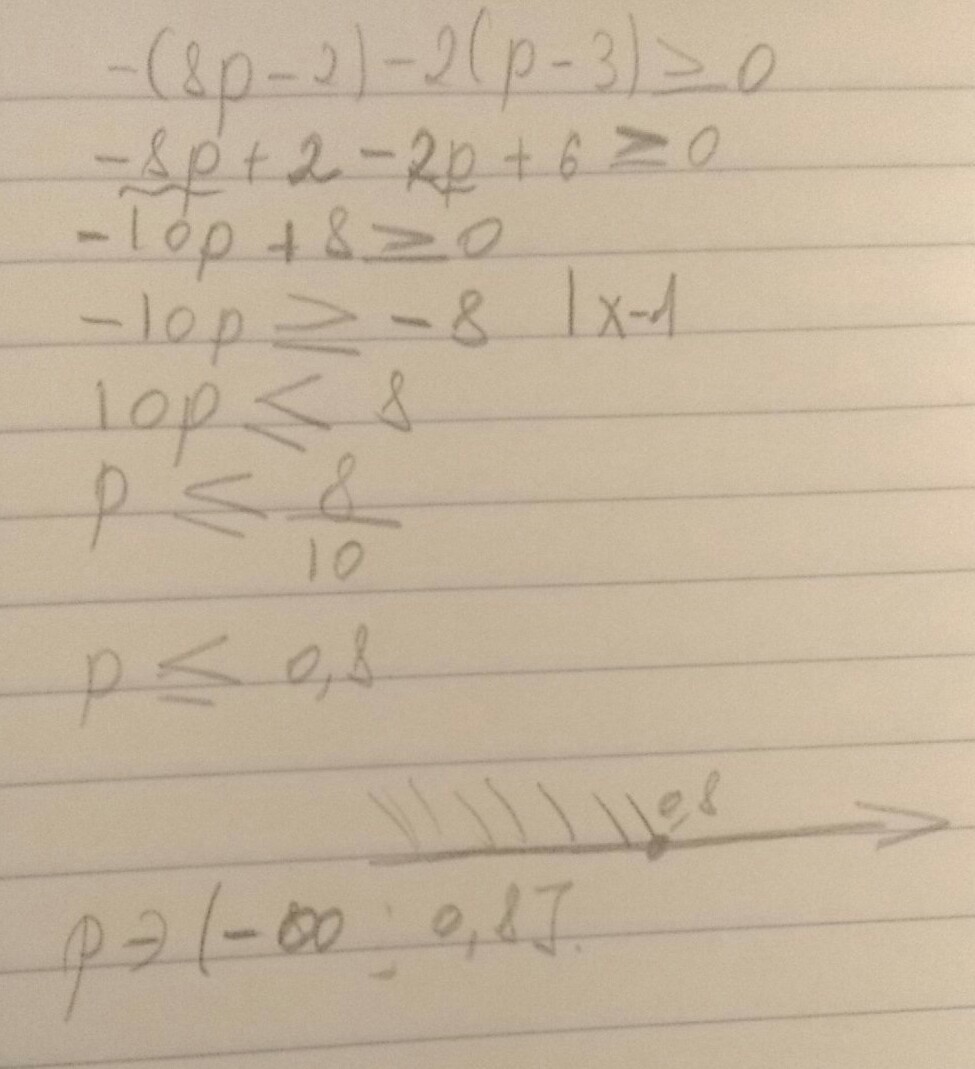 -(8p-2)-2(p-3)≥0
-8p+2-2p+6≥0
-10p+8≥0
-10p≥-8 |x-1
10p≤8
p≤8/10
p≤0,8
0,8
p→(-∞;0,8].